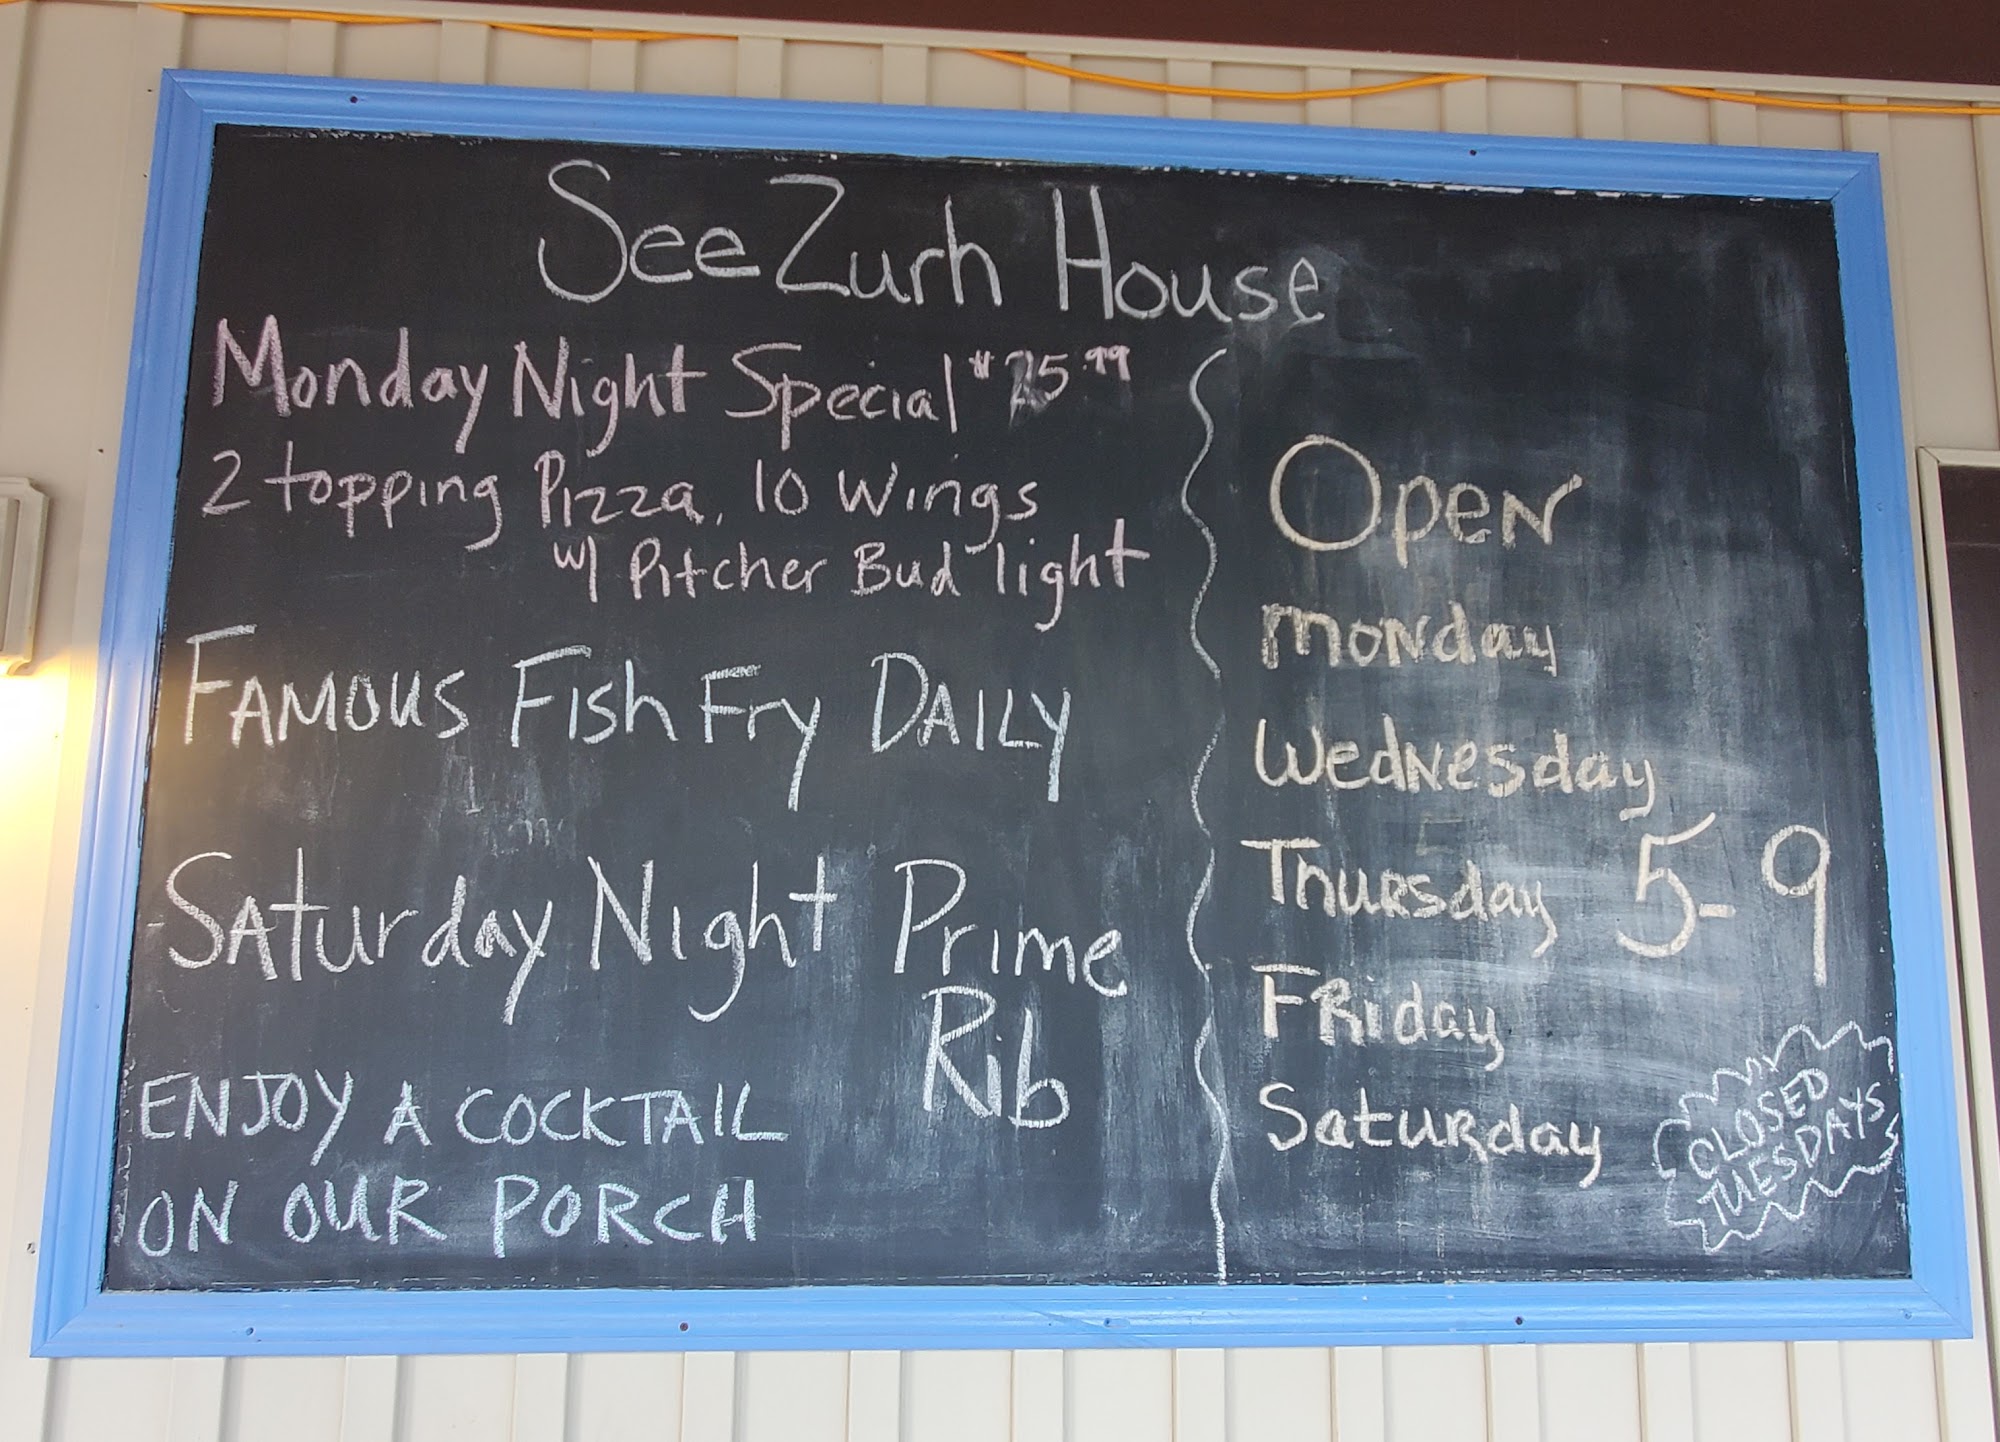 SeeZurh House
Monday Night Special $25.99
2 topping Pizza, 10 Wings
w/ Pitcher Bud light
FAMOUS FISH FRY DAILY
SATurday Night Prime
Rib
ENJOY A COCKTAIL
ON OUR PORCH
Open
Monday
Wednesday
Thursday 5-9
Friday
Saturday
CLOSED
TUESDAYS